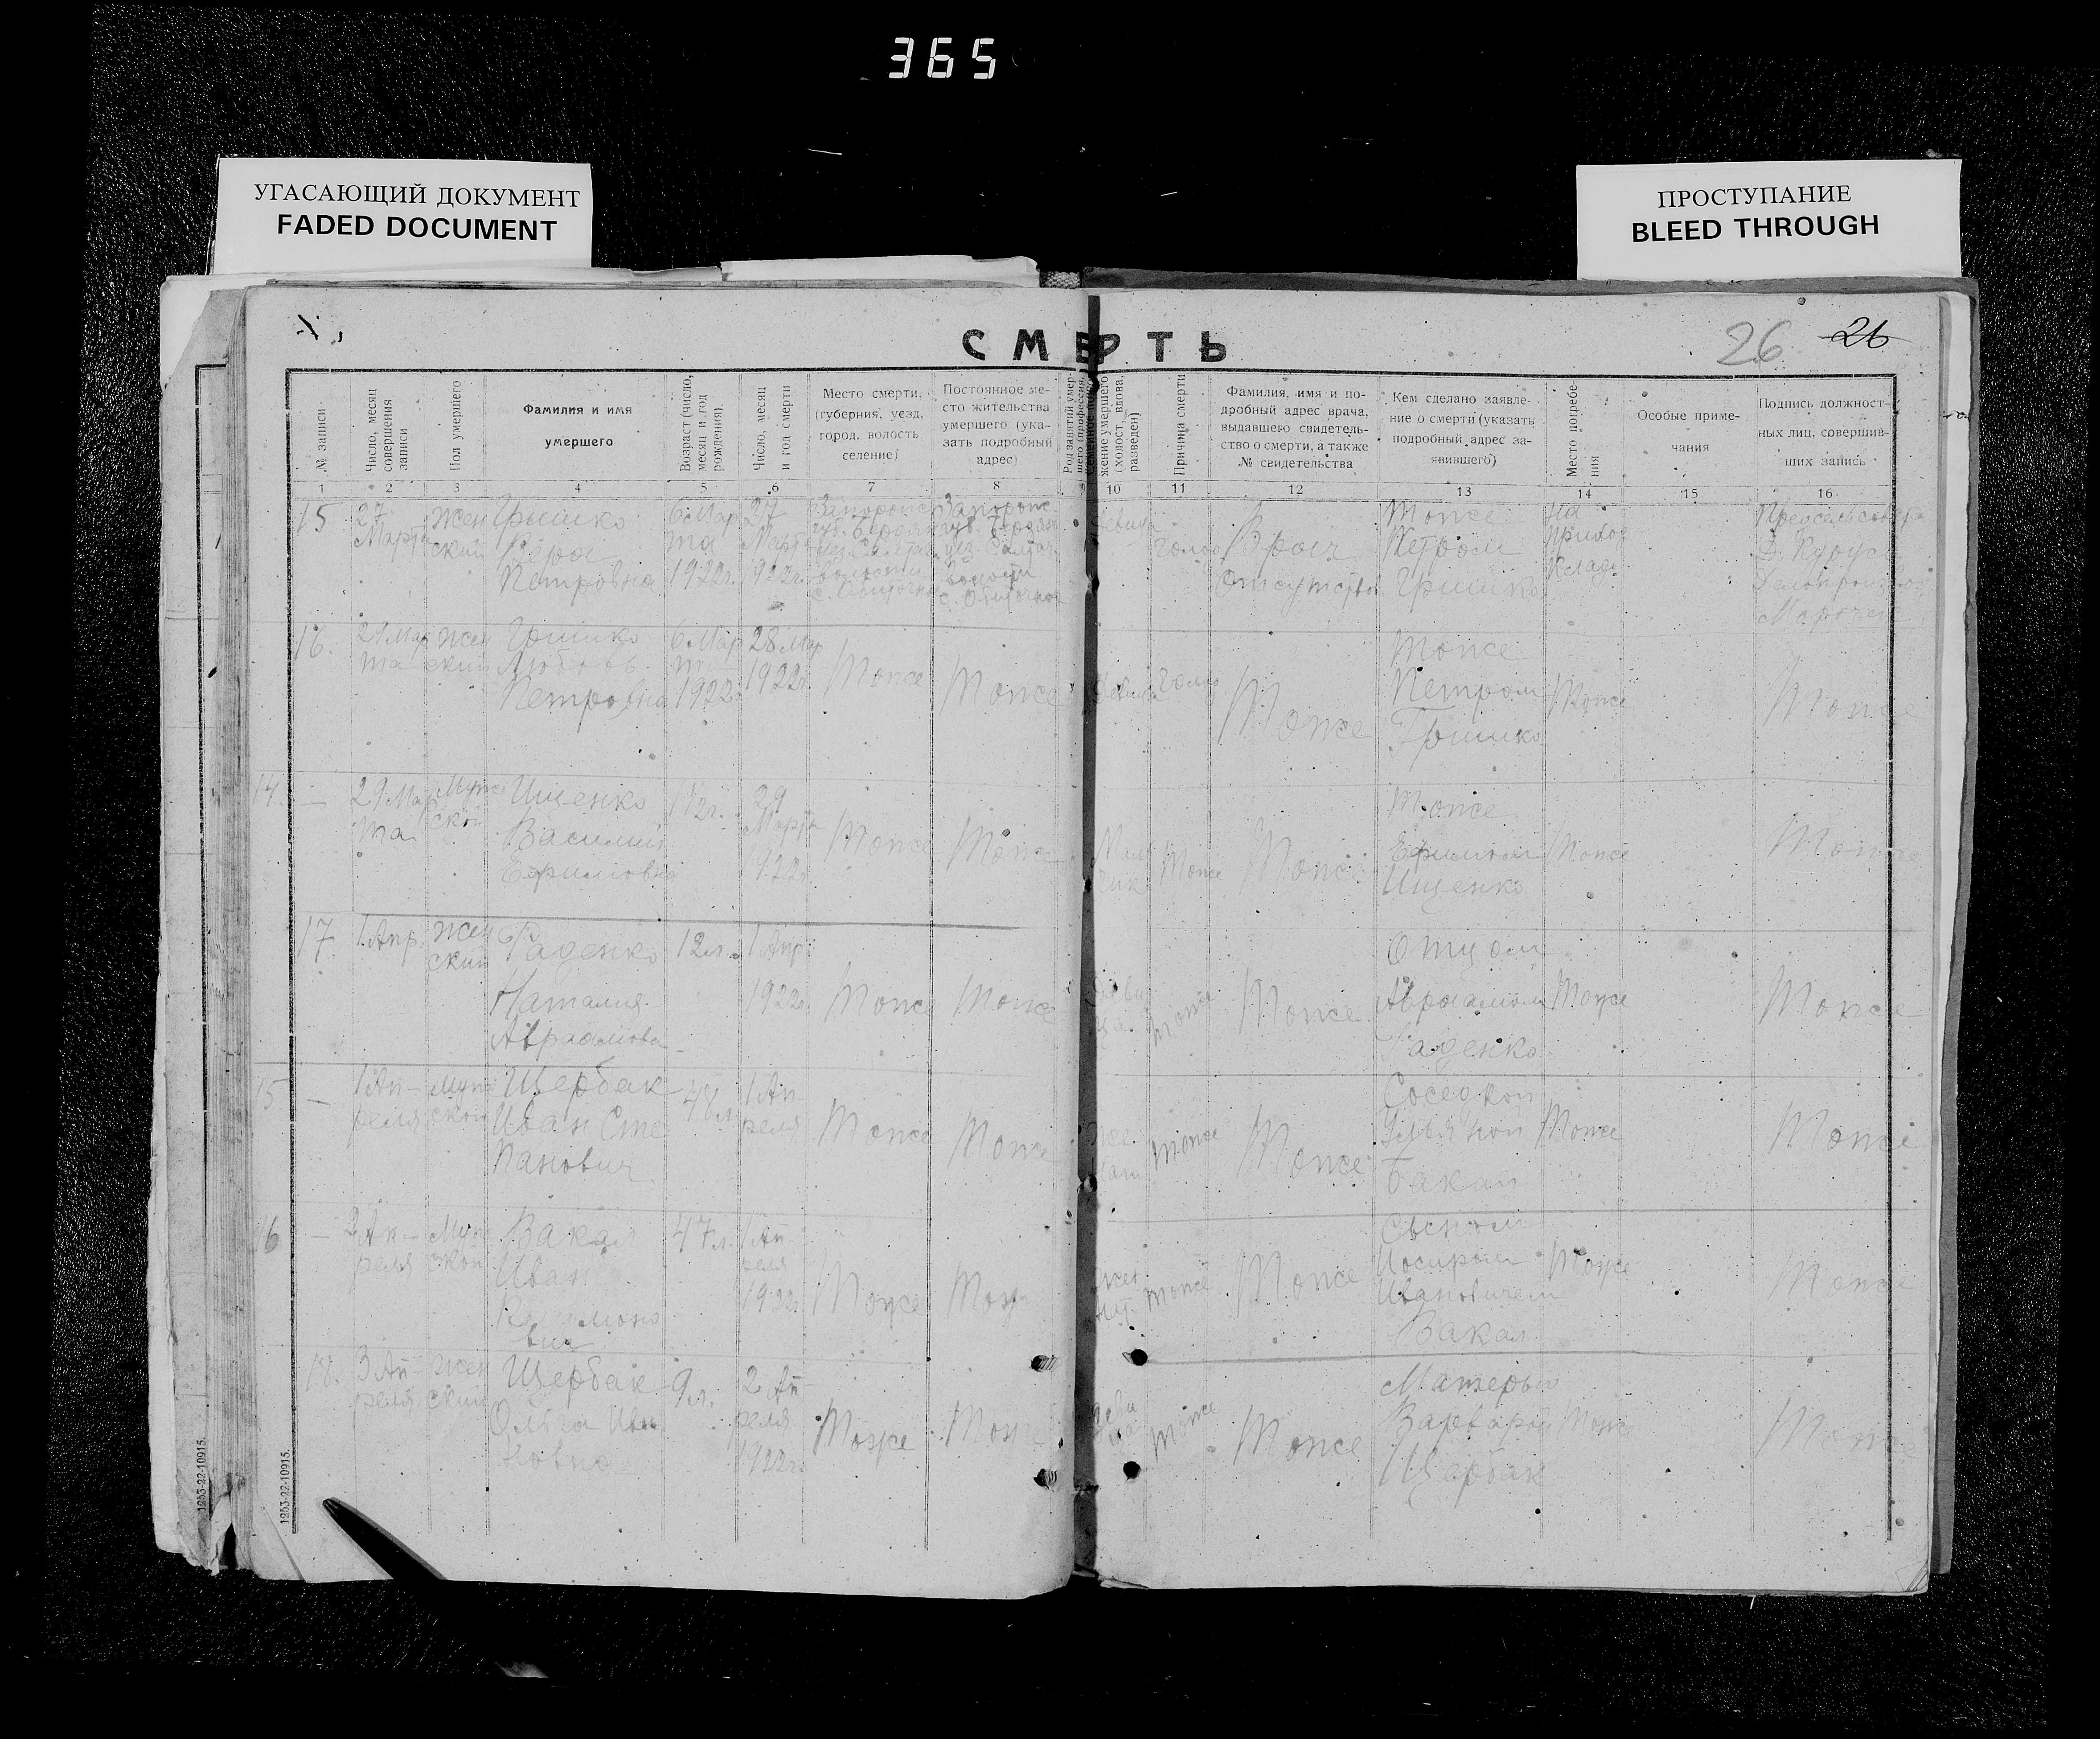 365
УГАСАЮЩИЙ ДОКУМЕНТ
FADED DOCUMENT
ПРОСТУПАНИЕ
BLEED THROUGH
СМЕРТЬ
26 26
№ записи
Число, месяц
совершения
записи
Пол умершего
Фамилия и имя
умершего
Возраст (число,
месяц и год
рождения)
Число, месяц
и год смерти
Место смерти,
(губерния, уезд,
город, волость
селение)
Постоянное ме-
сто жительства
умершего (ука-
зать подробный
адрес)
Род занятий умер-
шего (профессия,
жение умершего
(холост, вдова,
разведен)
Причина смерти
Фамилия, имя и по-
дробный адрес врача,
выдавшего свидетель-
ство о смерти, а также
№ свидетельства
Кем сделано заявле-
ние о смерти (указать
подробный адрес за-
явившего)
Место погребе-
ния
Особые приме-
чания
Подпись должност-
ных лиц, совершив-
ших запись
1 2 3 4 5 6 7 8 10 11 12 13 14 15 16
15
27
Марта
Жен
ский
Гришко
Вера
Петровна
6 Мар
та
1922г.
27
Марта
1922г.
Девица
Голод
Врач
Отсутств
Тоже
Петром
Гришко
на
приход
Клад
16.
Мар
та
Жен
ский
Гришко
Любовь
Петровна
6 Мар
та
1922
28 Мар
1922г.
Тоже
Тоже
Девица
Голод
Тоже
Тоже
Петром
Гришко
Тоже
Тоже
14. —
29 Мар
та
Муж
ской
Ищенко
Василий
Ефимович
29
Марта
1922
Тоже
Тоже
Маль
чик
Тоже
Тоже
Тоже
Ефимом
Ищенко
Тоже
Тоже
17.
1 Апр.
Жен
ский
Гаденко
Наталия
Авраамовна
12 л.
1 Апр.
1922г.
Тоже
Тоже
Деви
ца
Тоже
Тоже
Отцом
Авраамом
Гаденко
Тоже
Тоже
15 —
1 Ап-
реля
Муж
ской
Щербак
Иван Сте
панович
48 л.
1 Ап-
реля
Тоже
Тоже
Тоже
Тоже
Соседкой
Ульяной
Бакай
Тоже
Тоже
16 —
2 Ап-
реля
Муж
ской
Вакал
Иван
47 л.
1 Ап-
реля
1922г.
Тоже
Тоже
Жен
ат
Тоже
Тоже
Сыном
Иосифом
Ивановичем
Вакал
Тоже
Тоже
18.
3 Ап-
реля
Жен
ский
Щербак
Ольга Ива
новна
9 л.
2 Ап-
реля
1922г.
Тоже
Тоже
Деви
ца
Тоже
Тоже
Матерью
Варварой
Щербак
Тоже
Тоже
1253-22-10915.
1253-22-10915.